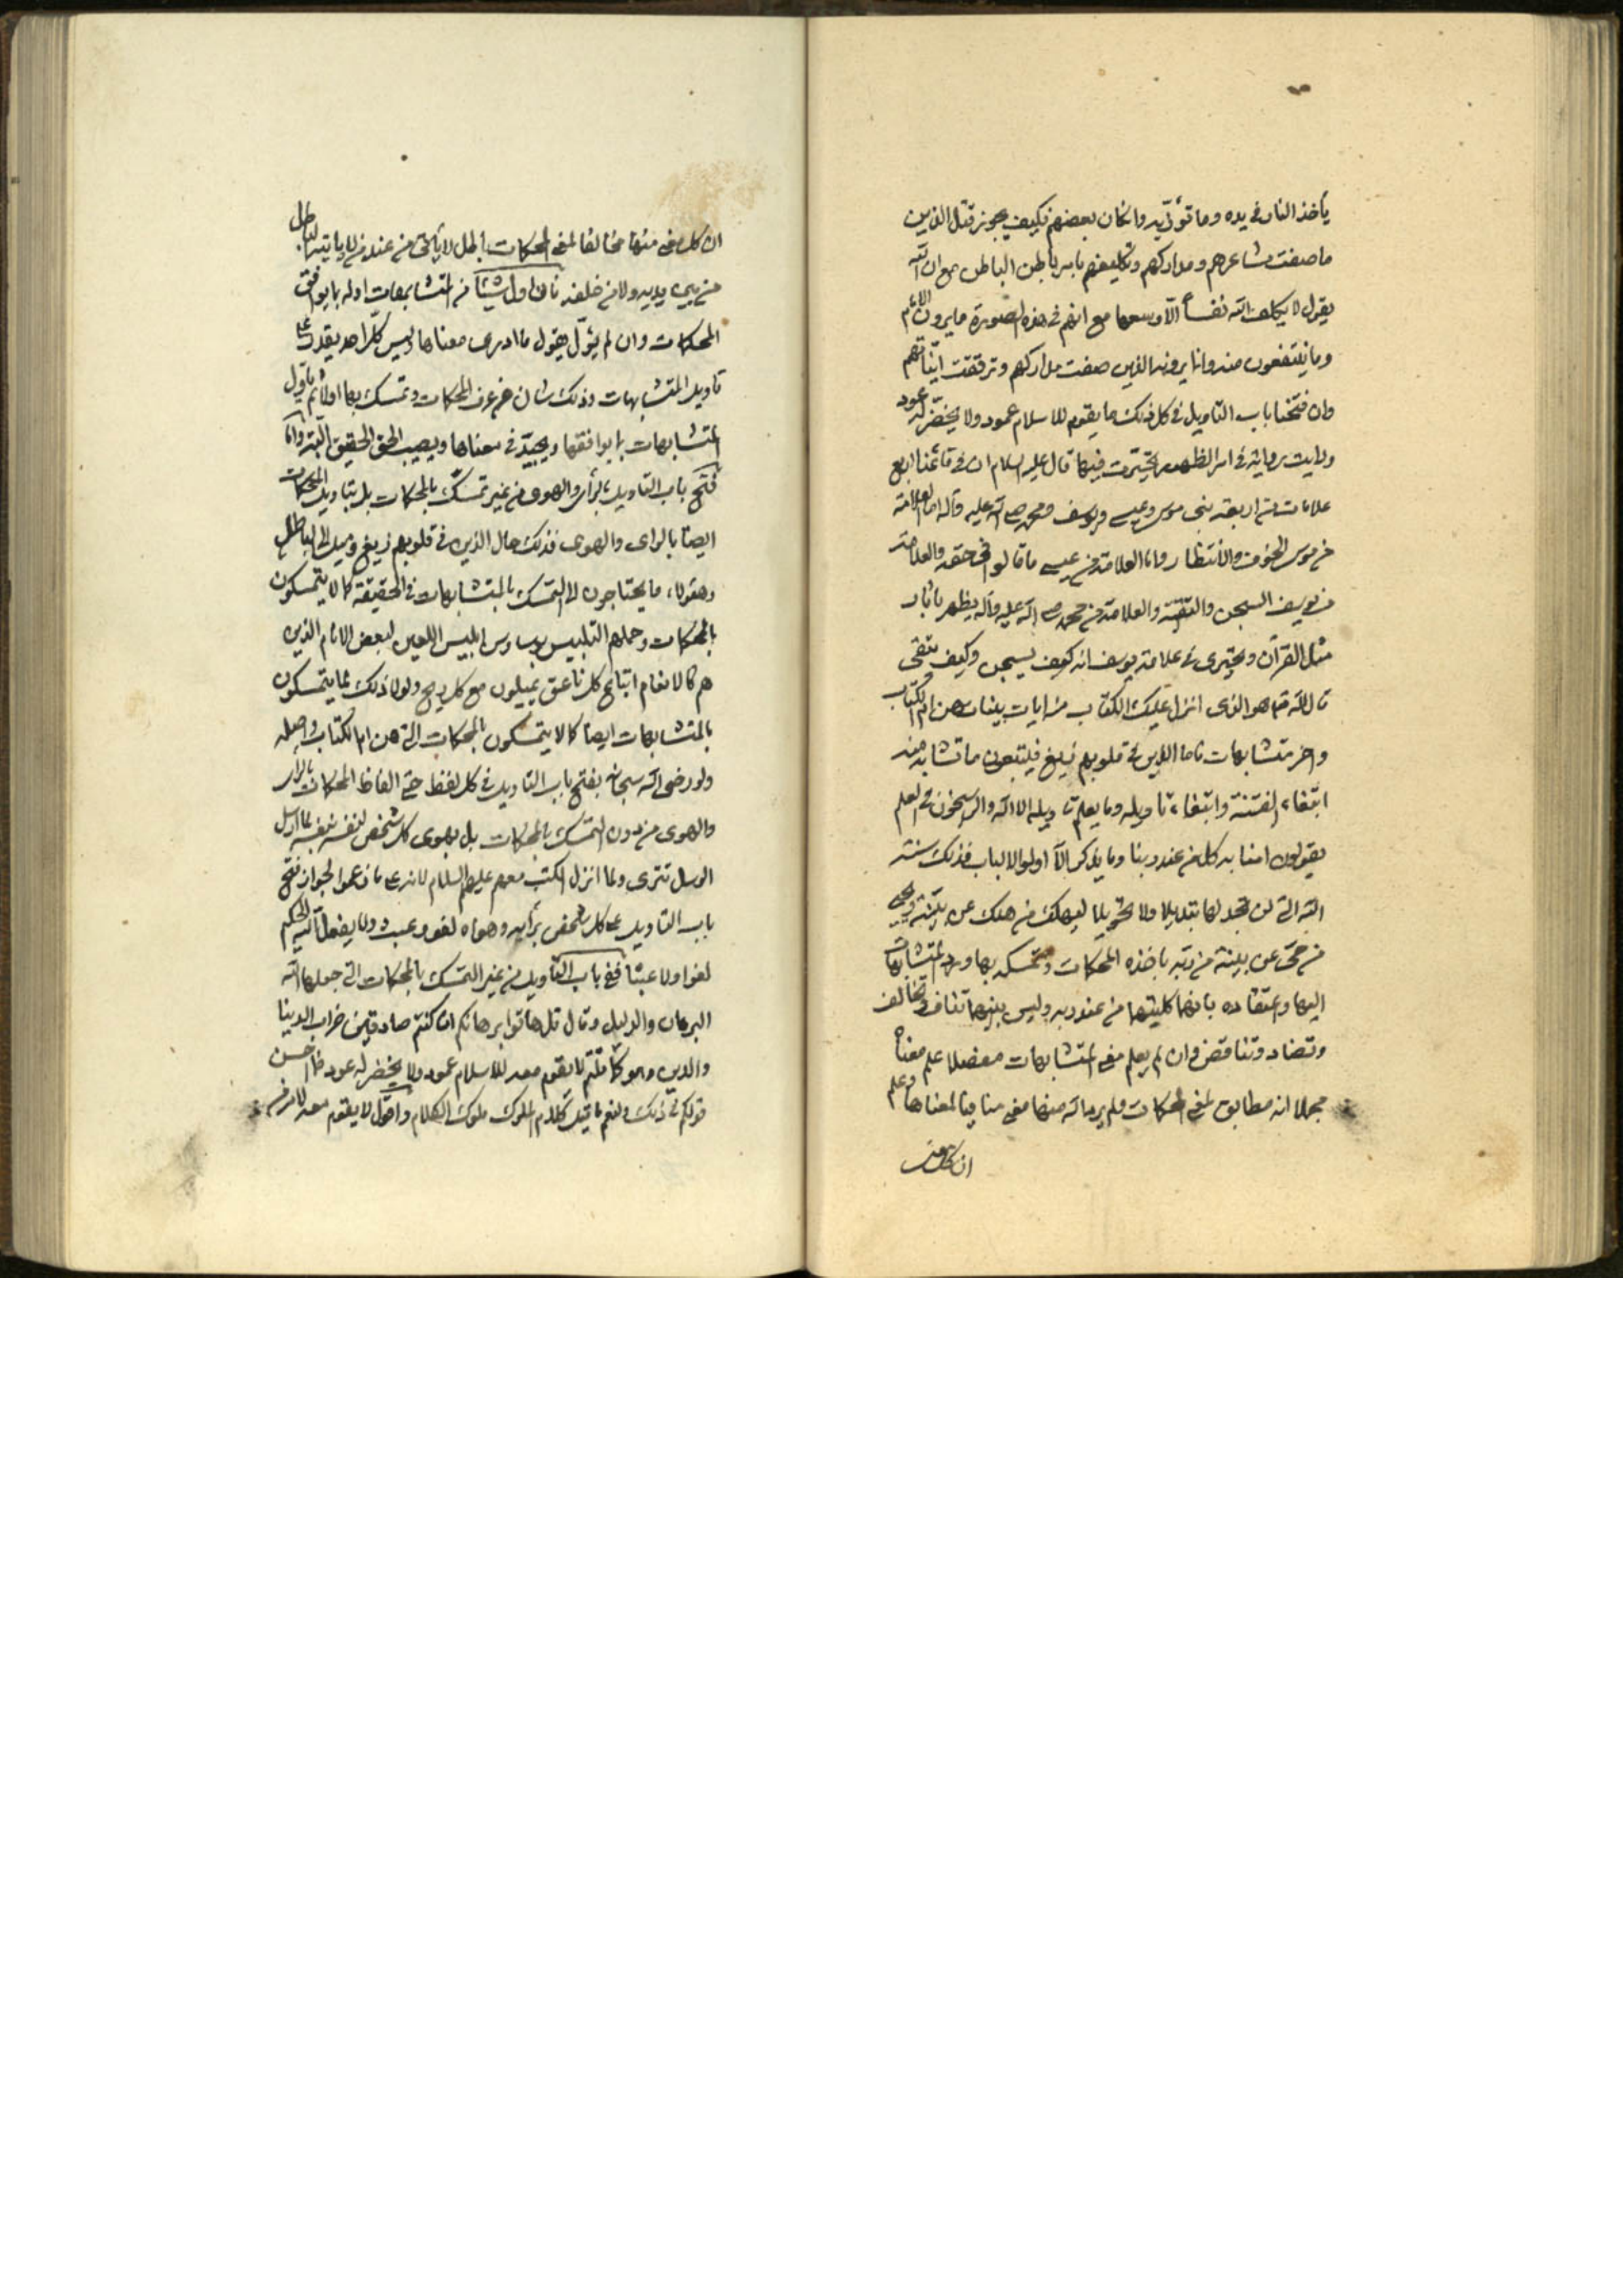 يأخذ النار في يده وما تؤذيه وانكان بعضهم فكيف يجوز قتل الذين
ما صفت مشاعرهم ومداركهم وتكليفهم بامر باطن الباطن مع ان الله
يقول لا يكلف الله نفساً الّا وسعها مع انهم في هذه الصورة ما يرون الامام
وما ينتفعون منه وانما يرونه الذين صفت مداركهم وترققت انيّاتهم
وان فتحنا باب التاويل في كل ذلك ما يقوم للاسلام عمود ولا يخضرّ له عود
ورايت رواية في امر الظهور تحيّرت فيها قال عليه السلام ان في قائمنا اربع
علامات من اربعة نبى موسى وعيسى ويوسف ومحمد صلى الله عليه وآله اما العلامة
من موسى الخوف والانتظار واما العلامة من عيسى ما قالوا في حقه والعلامة
من يوسف السجن والتقيّة والعلامة من محمد صلى الله عليه وآله يظهر باثار
مثل القرآن وتحيّرى في علامة يوسف انه كيف يسجن وكيف يتقى
قال الله تع هو الذى انزل عليك الكتاب منه ايات بينات هن ام الكتاب
واخر متشابهات فاما الذين في قلوبهم زيغ فيتبعون ما تشابه منه
ابتغاء الفتنة وابتغاء تاويله وما يعلم تاويله الا الله والراسخون في العلم
يقولون امنا به كل من عند ربنا وما يذكر الّا اولوا الالباب فذلك سنة
الله التي لن تجد لها تبديلا ولا تحويلا ليهلك من هلك عن بيّنة ويحيى
من حيّ عن بينة من ربه باخذه المحكمات وتمسكه بها ورد المتشابهات
اليها واعتقاده بانها كليتهما من عند ربه وليس بينهما تناف وتخالف
وتضاد وتناقض وان لم يعلم معنى المتشابهات مفصلا علم معناه
مجملا انه مطابق لمعنى المحكمات ولم يرد الله منها معنى منافيا لمعناها وعلم
ان كل معنى
ان كل معنى منها مخالفا لمعنى المحكمات باطل لا يأتى من عند من لا ياتيه الباطل
من بين يديه ولا من خلفه فان اول شيئا من المتشابهات اوله بما يوافق
المحكمات وان لم يئوّل فيقول ما ادرى معناها وليس كلّ احد يقدر على
تاويل المتشابهات وذلك شان من عرف المحكمات وتمسك بها اولا ثم ياول
المتشابهات بما يوافقها ويجيّد في معناها ويصيب الحق الحقيق البتة واما
فتح باب التاويل بالرأى والهوى من غير تمسك بالمحكمات بل بتاويل المحكمات
ايضا بالراى والهوى فذلك حال الذين في قلوبهم زيغ وميل الى الباطل
وهؤلاء ما يحتاجون الى التمسك بالمتشابهات في الحقيقة كما لا يتمسكون
بالمحكمات وحملهم التلبيس بوساوس ابليس اللعين لبعض الانام الذين
هم كالانعام اتباع كل ناعق يميلون مع كل ريح ولولا ذلك لما يتمسكون
بالمتشابهات ايضا كما لا يتمسكون بالمحكمات التى هن ام الكتاب واصله
ولو رضى الله سبحانه بفتح باب التاويل في كل لفظ حتى الفاظ المحكمات بالراى
والهوى من دون التمسك بالمحكمات بل بهوى كل شخص لنفسه بنفسه لما ارسل
الرسل تترى ولما انزل الكتب معهم عليهم السلام لانه على ما زعموا لجواز فتح
باب التاويل على كل شخص برأيه وهواه لغو وعبث ولا يفعل الله الحكيم
لغوا ولا عبثا ففتح باب التاويل من غير التمسك بالمحكمات التى جعلها الله
البرهان والدليل وقال قل هاتوا برهانكم ان كنتم صادقين خراب الدنيا
والدين وهو كما قلتم لا يقوم معه للاسلام عمود ولا يخضر له عود فما احسن
قولكم في ذلك ولنعم ما قيل كلام الملوك ملوك الكلام واقول لا يلتئم معه لامر